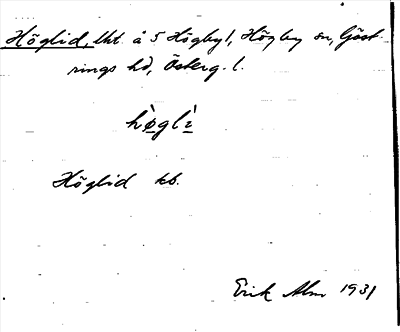 Höglid, lht å 5 Högby1, Högby sn, Göst-
rings hd, Österg. l.
hø̀glì
Höglid kb.
Erik Alm 1931